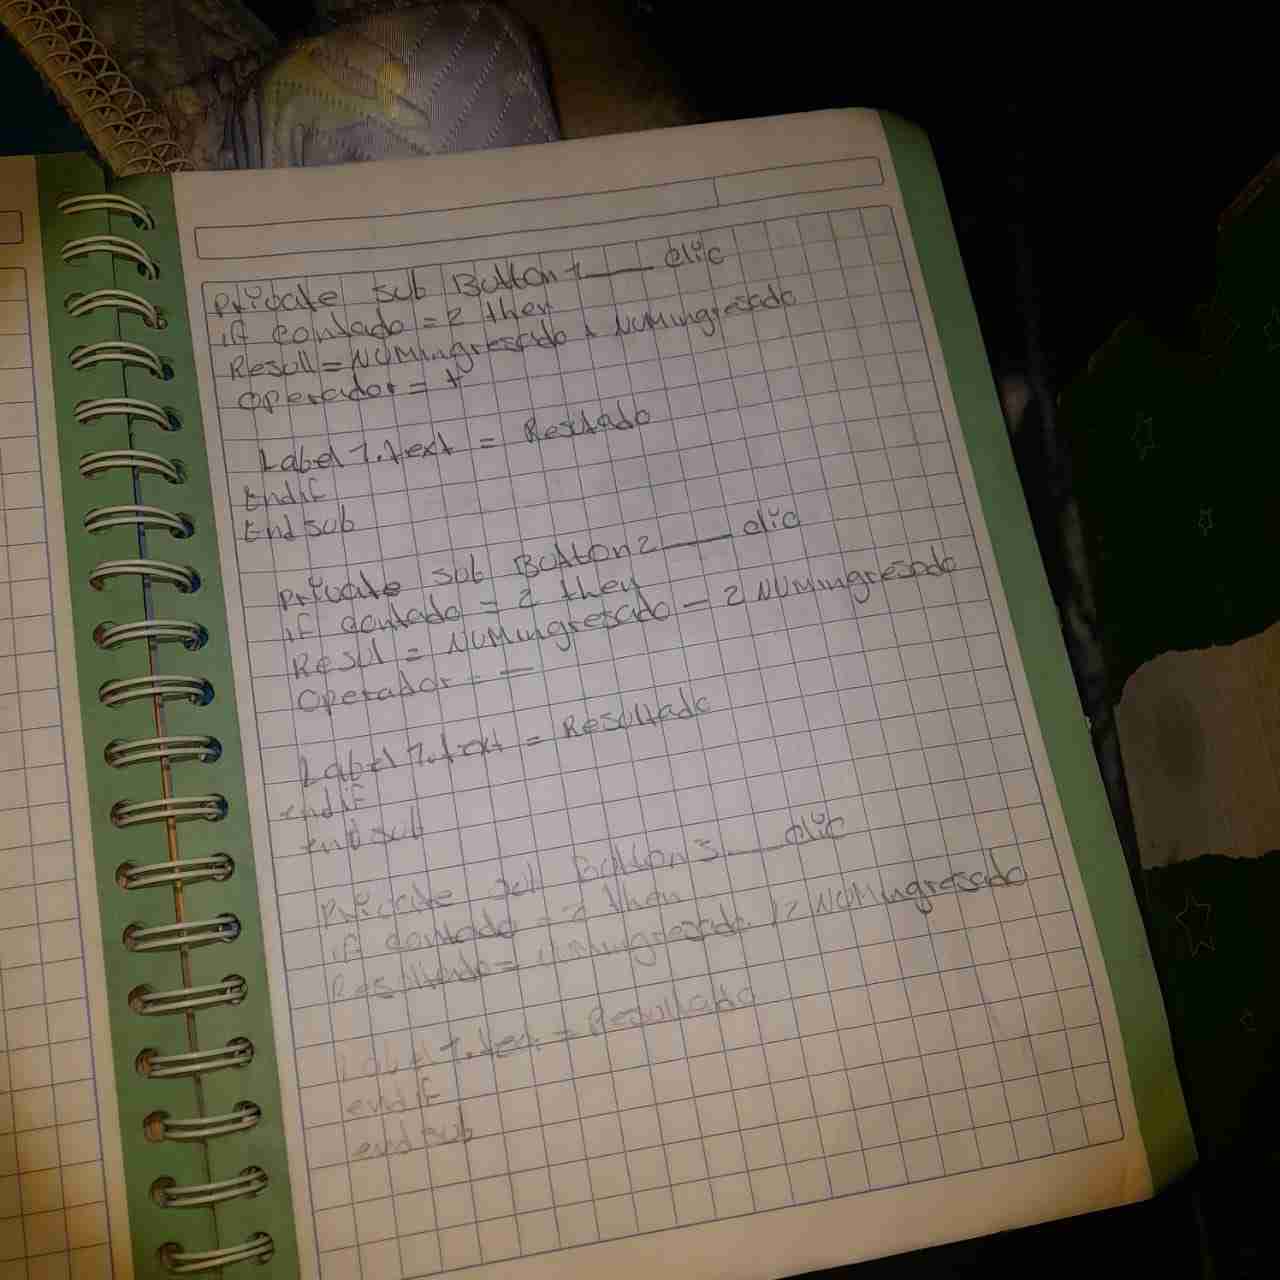 Private sub Button 1 ___ clic
if contado = 2 then
Resull = NUMingresado + NUMingresado
Operador = +
Label 1.text = Resultado
End if
End sub
private sub Button 2 ___ clic
if contado = 2 then
Resul = NUMingresado - 2 NUMingresado
Operador = -
Label 1.text = Resultado
end if
end sub
private sub Button 3 ___ clic
if contado = 2 then
Resultado = NUMingresado / 2 NUMingresado
Label 1.text = Resultado
end if
end sub